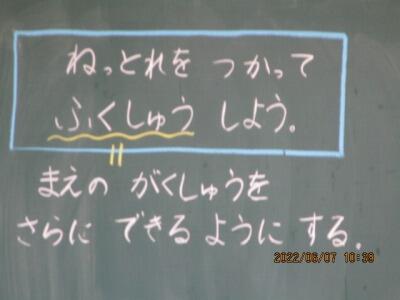 ねっとれを つかって
ふくしゅう しよう。
まえの がくしゅうを
さらに できる ように する。
2022/06/07 10:39